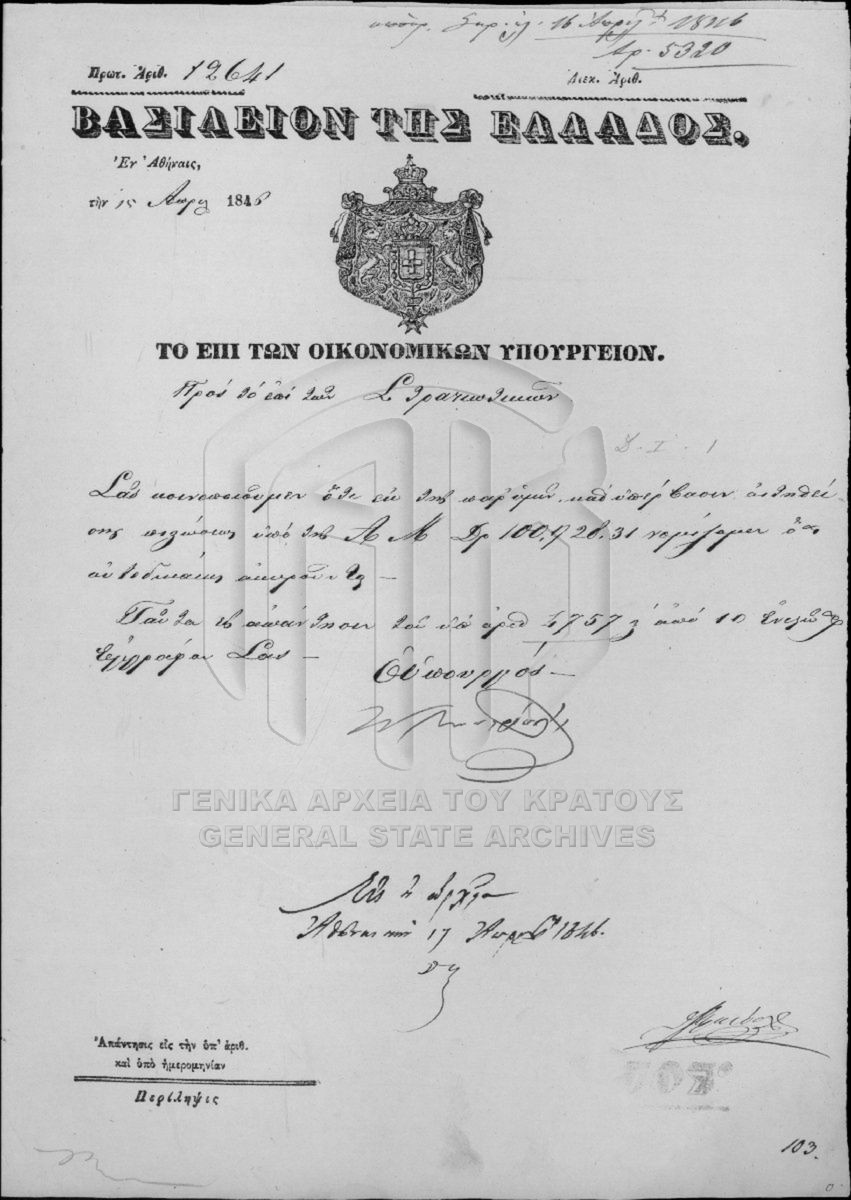 16 Απρηλ 1846
Αρ. 5320
Πρωτ. Ἀριθ. 12641
Διεκ. Ἀριθ.
ΒΑΣΙΛΕΙΟΝ ΤΗΣ ΕΛΛΑΔΟΣ.
Ἐν Ἀθήναις,
τὴν 15 Απριλ 1846
ΤΟ ΕΠΙ ΤΩΝ ΟΙΚΟΝΟΜΙΚΩΝ ΥΠΟΥΡΓΕΙΟΝ.
Πρὸς τὸ ἐπὶ τῶν Στρατιωτικῶν
Σᾶς κοινοποιοῦμεν ὅτι ἐκ τῆς παρ' ὑμῶν καθ' ὑπέρβασιν αἰτηθεί-
σης πιστώσεως ὑπὸ της Δρ 100,928.31 νομίζομεν
Ταῦτα εἰς ἀπάντησιν τοῦ ὑπ ἀριθ 4757 ἀπό 10 ἐνεστῶτ
ἐγγράφου Σας —
Ὁ Ὑπουργός —
ΓΕΝΙΚΑ ΑΡΧΕΙΑ ΤΟΥ ΚΡΑΤΟΥΣ
GENERAL STATE ARCHIVES
Εἰς τ ἀρχεῖα
Ἀθῆναι τὴν 17 Ἀπριλ 1846.
Ἀπάντησις εἰς τὴν ὑπ' ἀριθ.
καὶ ὑπὸ ἡμερομηνίαν
Περίληψις
103.